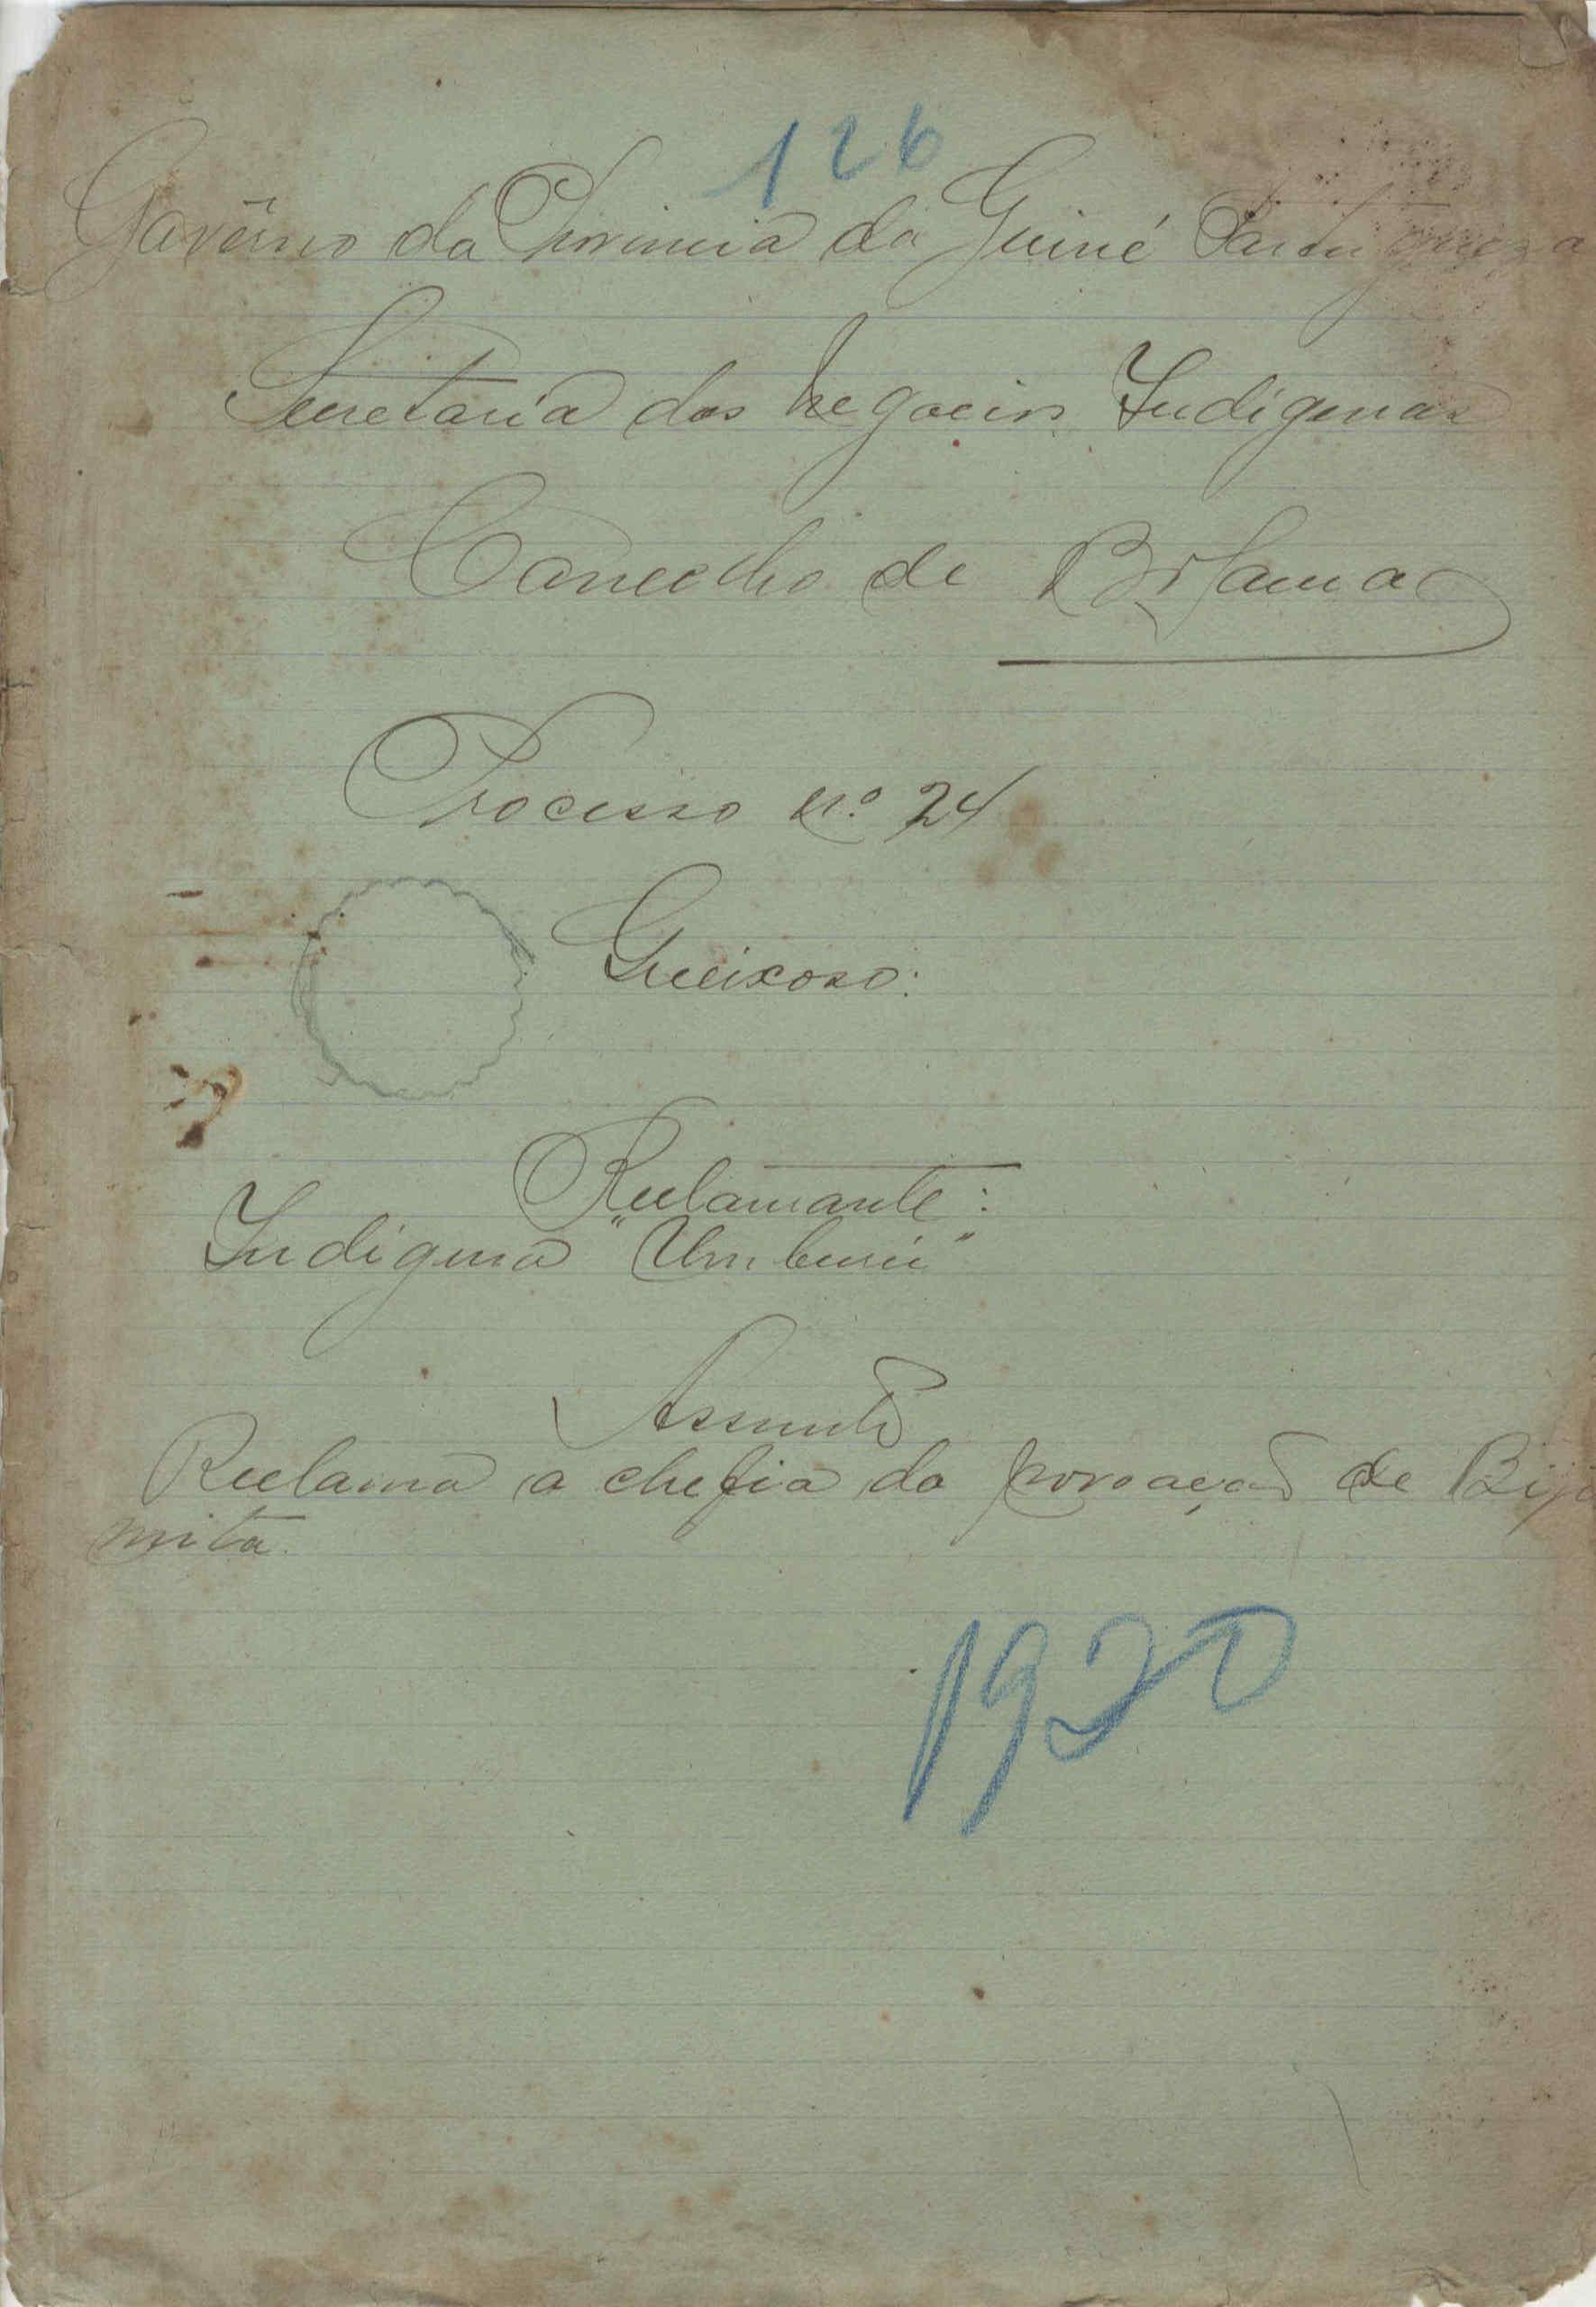 126
Govêrno da Provincia da Guiné Portugueza
Secretaria dos Negocios Indigenas
Concelho de Bolama
Processo nº 24
Queixoso:
Reclamante:
Indigena "Umburú"
Assunto
Reclama a chefia da povoação de Biji
mita.
1920